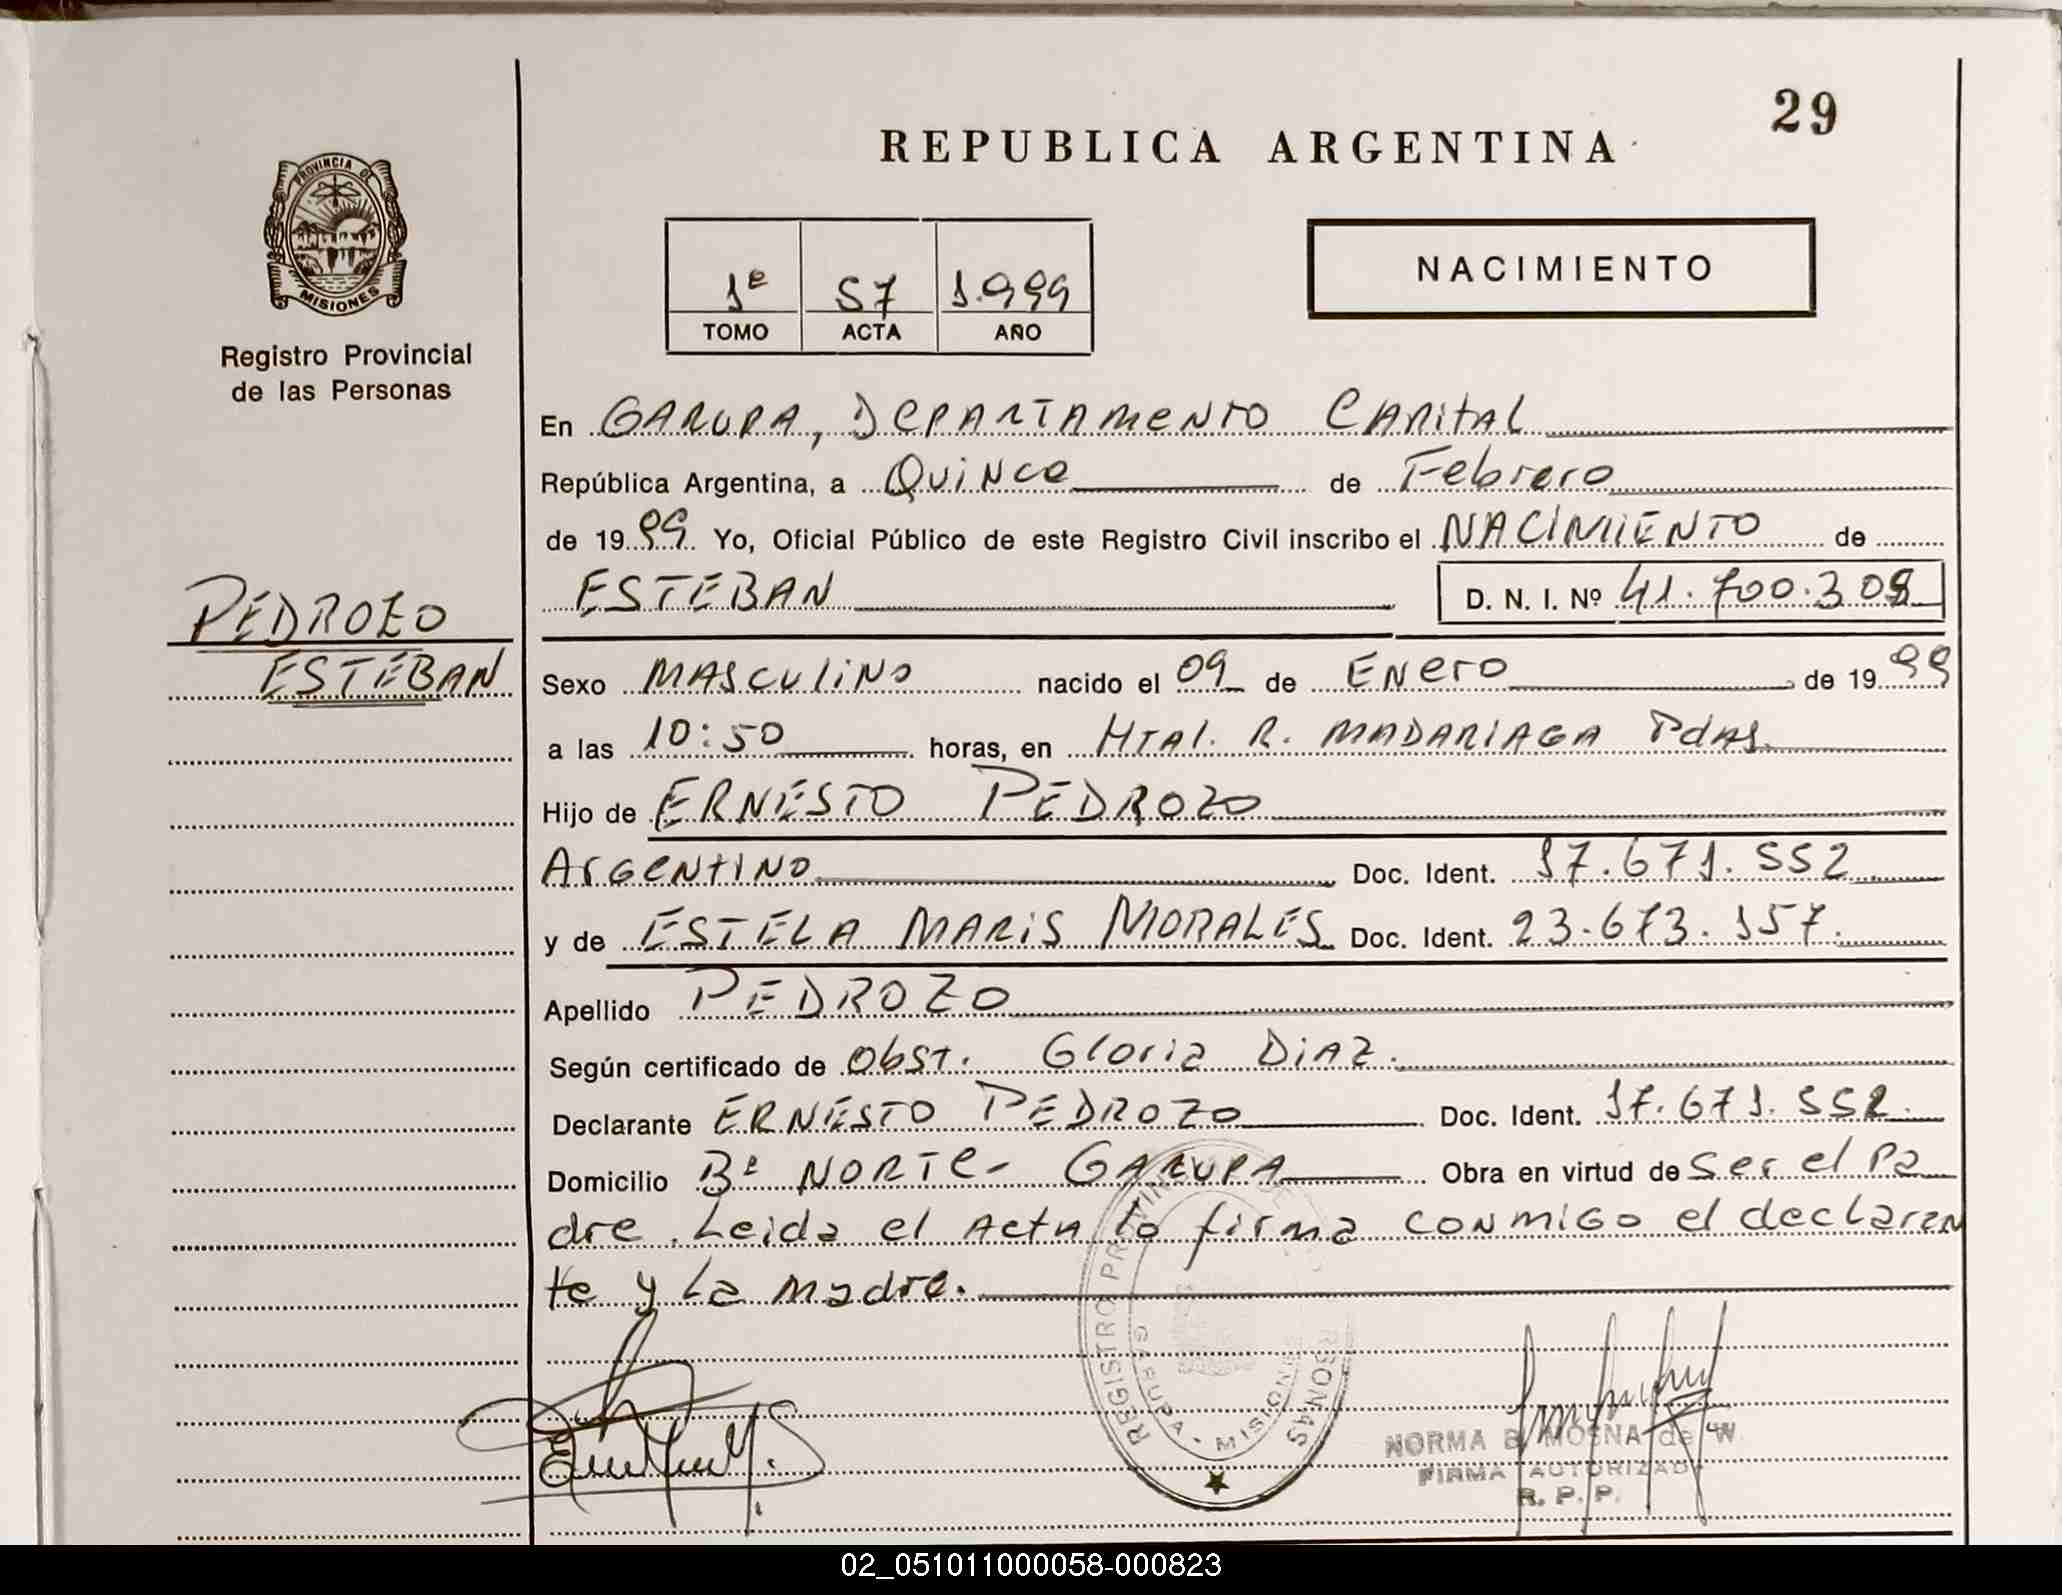 29
REPUBLICA ARGENTINA
PROVINCIA DE
MISIONES
Registro Provincial
de las Personas
1º 57 1.999
TOMO ACTA AÑO
NACIMIENTO
En GARUPA, DEPARTAMENTO CAPITAL
República Argentina, a Quince de Febrero
de 1999 Yo, Oficial Público de este Registro Civil inscribo el NACIMIENTO de
ESTEBAN D. N. I. Nº 41.700.308
PEDROZO
ESTEBAN
Sexo MASCULINO nacido el 09 de Enero de 1999
a las 10:50 horas, en Htal. R. MADARIAGA Pdas.
Hijo de ERNESTO PEDROZO
ARGENTINO Doc. Ident. 17.671.552
y de ESTELA MARIS MORALES Doc. Ident. 23.673.157.
Apellido PEDROZO
Según certificado de Obst. Gloria DIAZ.
Declarante ERNESTO PEDROZO Doc. Ident. 17.671.552.
Domicilio Bº NORTE- GARUPA Obra en virtud de ser el Pa
dre. Leida el Acta la firma conmigo el declaran
te y La madre.
REGISTRO PROVINCIAL DE LAS PERSONAS
GARUPA - MISIONES
NORMA B. MOSNA de W.
FIRMA AUTORIZADA
R. P. P.
02_051011000058-000823